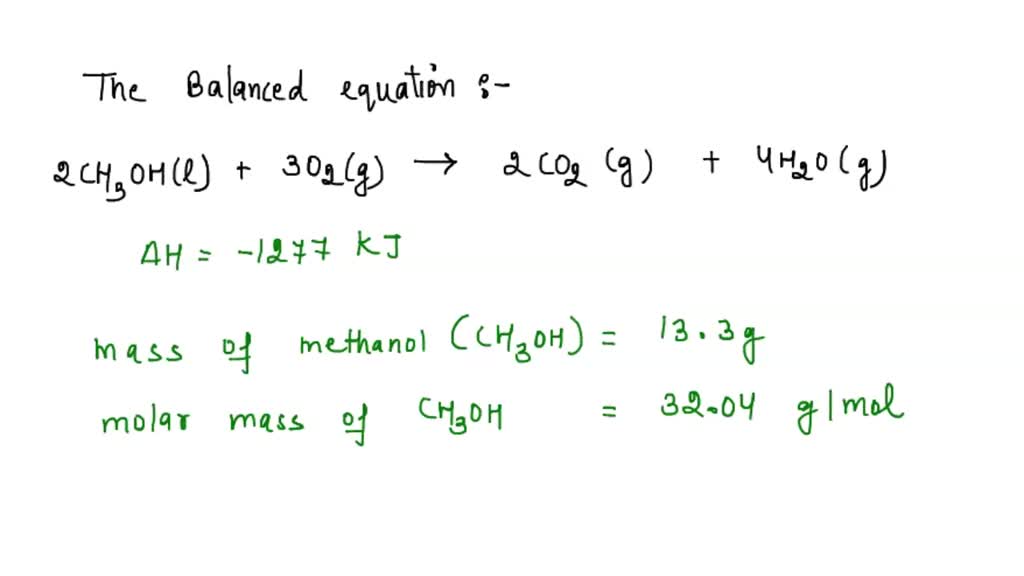 The Balanced equation :-
2CH₃OH(l) + 3O₂(g) → 2CO₂(g) + 4H₂O(g)
ΔH = -1277 KJ
mass of methanol (CH₃OH) = 13.3g
molar mass of CH₃OH = 32.04 g/mol